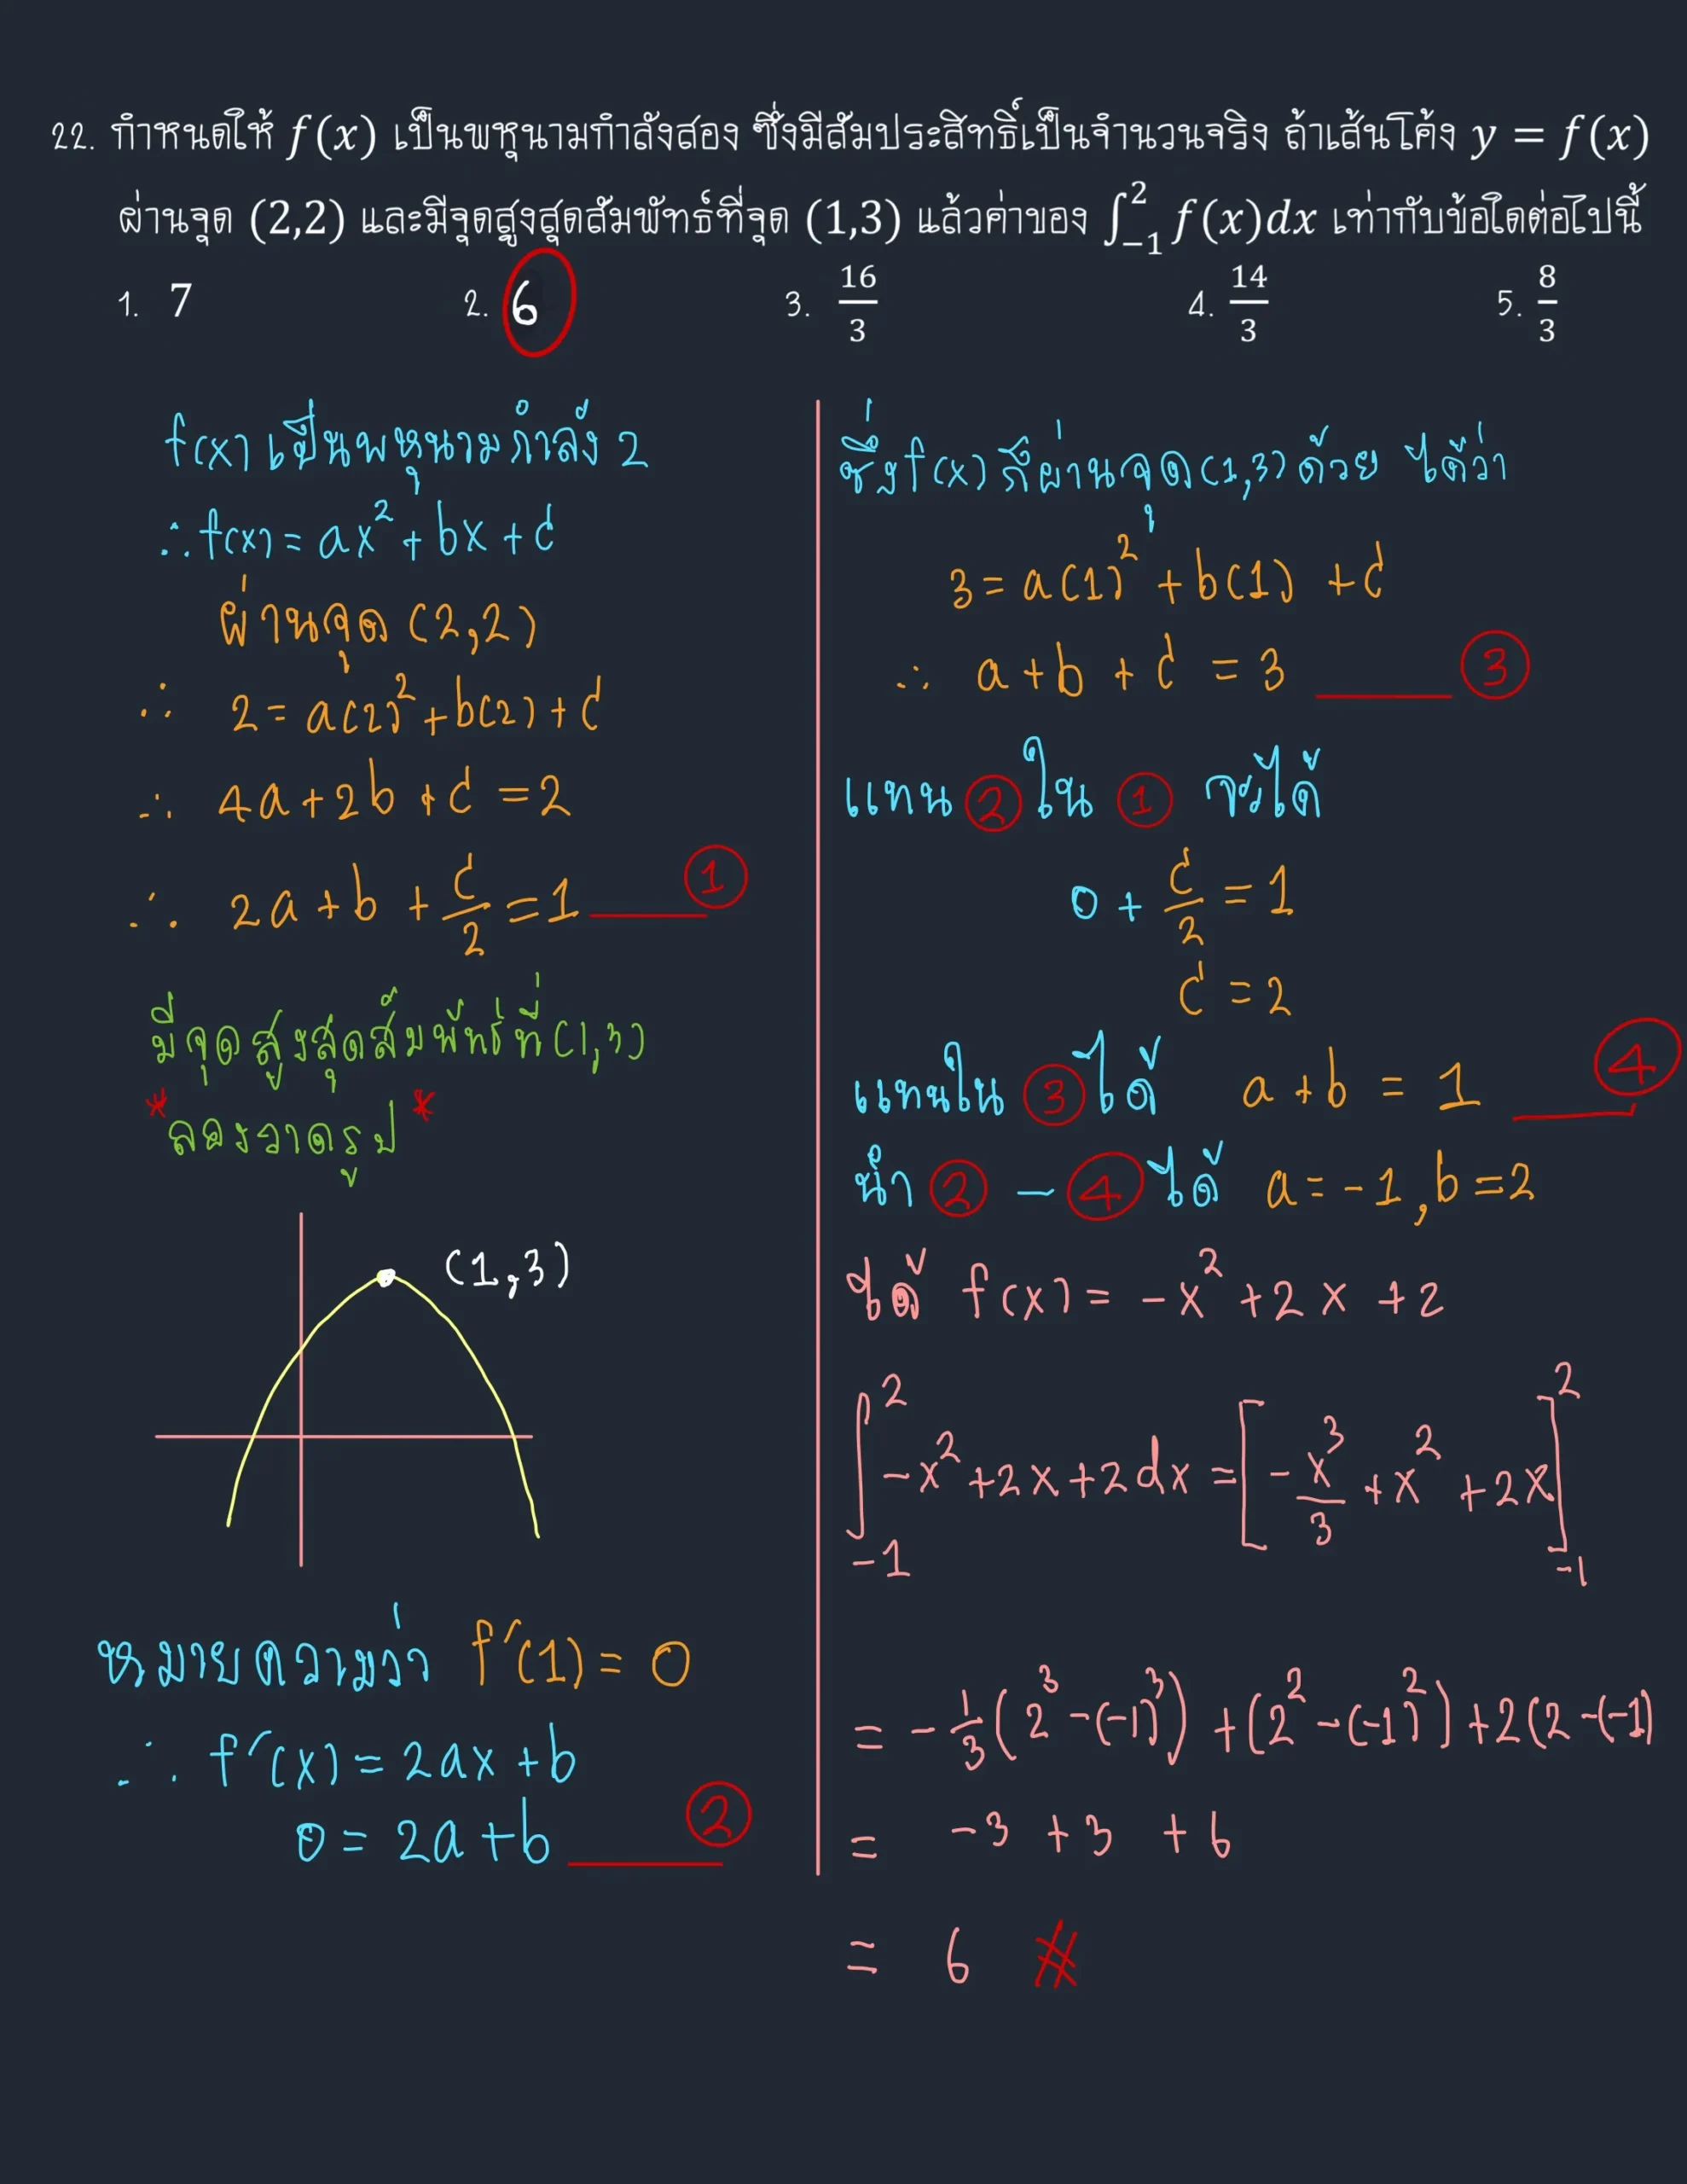 22. กำหนดให้ f(x) เป็นพหุนามกำลังสอง ซึ่งมีสัมประสิทธิ์เป็นจำนวนจริง ถ้าเส้นโค้ง y = f(x)
ผ่านจุด (2,2) และมีจุดสูงสุดสัมพัทธ์ที่จุด (1,3) แล้วค่าของ ∫₋₁² f(x)dx เท่ากับข้อใดต่อไปนี้
1. 7 2. 6 3. 16/3 4. 14/3 5. 8/3
f(x) เป็นพหุนามกำลัง 2
∴ f(x) = ax² + bx + c
ผ่านจุด (2,2)
∴ 2 = a(2)² + b(2) + c
∴ 4a + 2b + c = 2
∴ 2a + b + c/2 = 1 ①
มีจุดสูงสุดสัมพัทธ์ที่ (1,3)
*ลองวาดรูป*
(1,3)
หมายความว่า f′(1) = 0
∴ f′(x) = 2ax + b
0 = 2a + b ②
ซึ่ง f(x) ก็ผ่านจุด (1,3) ด้วย ได้ว่า
3 = a(1)² + b(1) + c
∴ a + b + c = 3 ③
แทน ② ใน ① จะได้
0 + c/2 = 1
c = 2
แทนใน ③ ได้ a + b = 1 ④
นำ ② − ④ ได้ a = -1, b = 2
ได้ f(x) = -x² + 2x + 2
∫₋₁² -x² + 2x + 2 dx = [-x³/3 + x² + 2x]₋₁²
= -1/3(2³ - (-1)³) + (2² - (-1)²) + 2(2 - (-1)
= -3 + 3 + 6
= 6 #